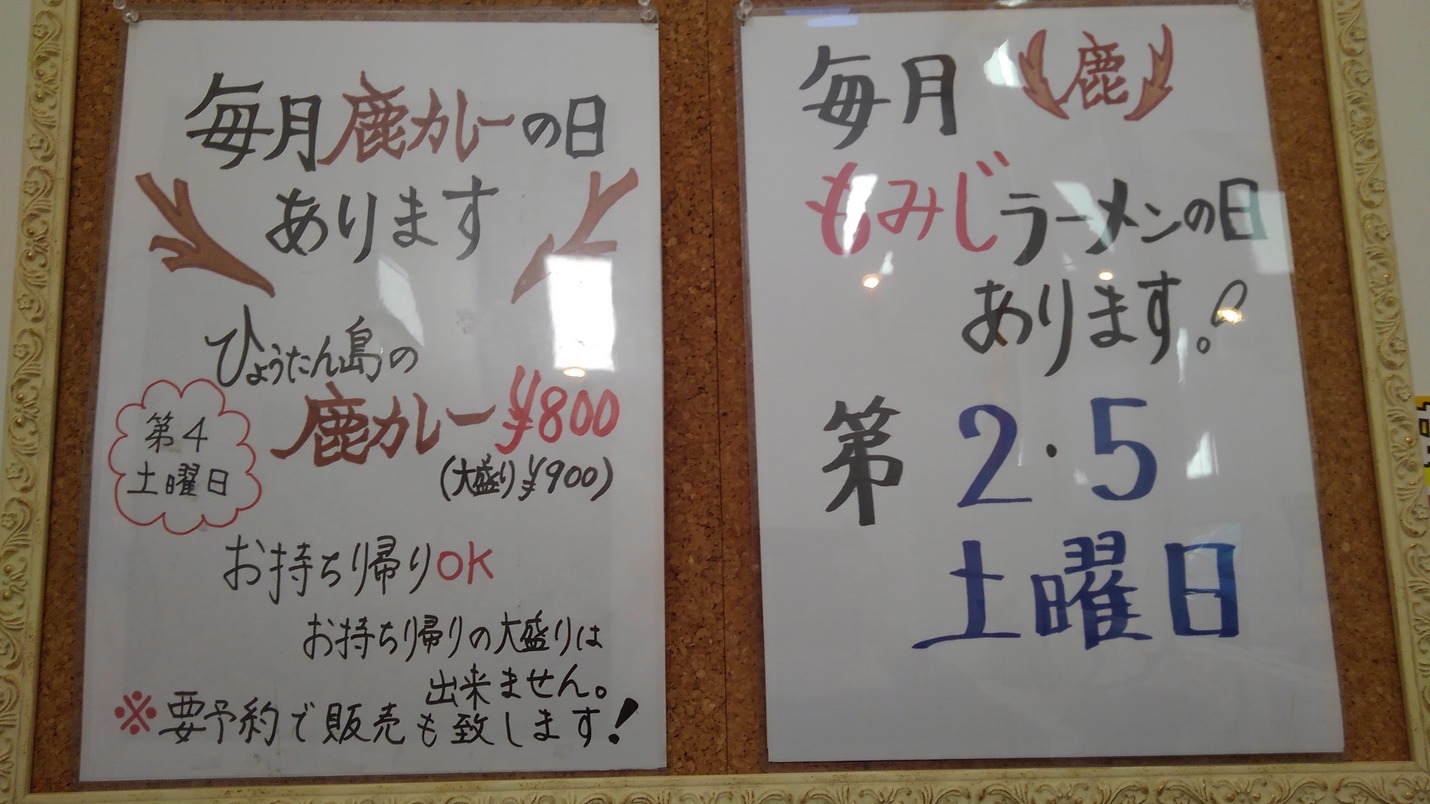 毎月鹿カレーの日
あります
ひょうたん島の
鹿カレー¥800
(大盛り¥900)
第4
土曜日
お持ち帰りOK
お持ち帰りの大盛りは
出来ません。
※要予約で販売も致します!
毎月 鹿
もみじラーメンの日
あります!
第2・5
土曜日